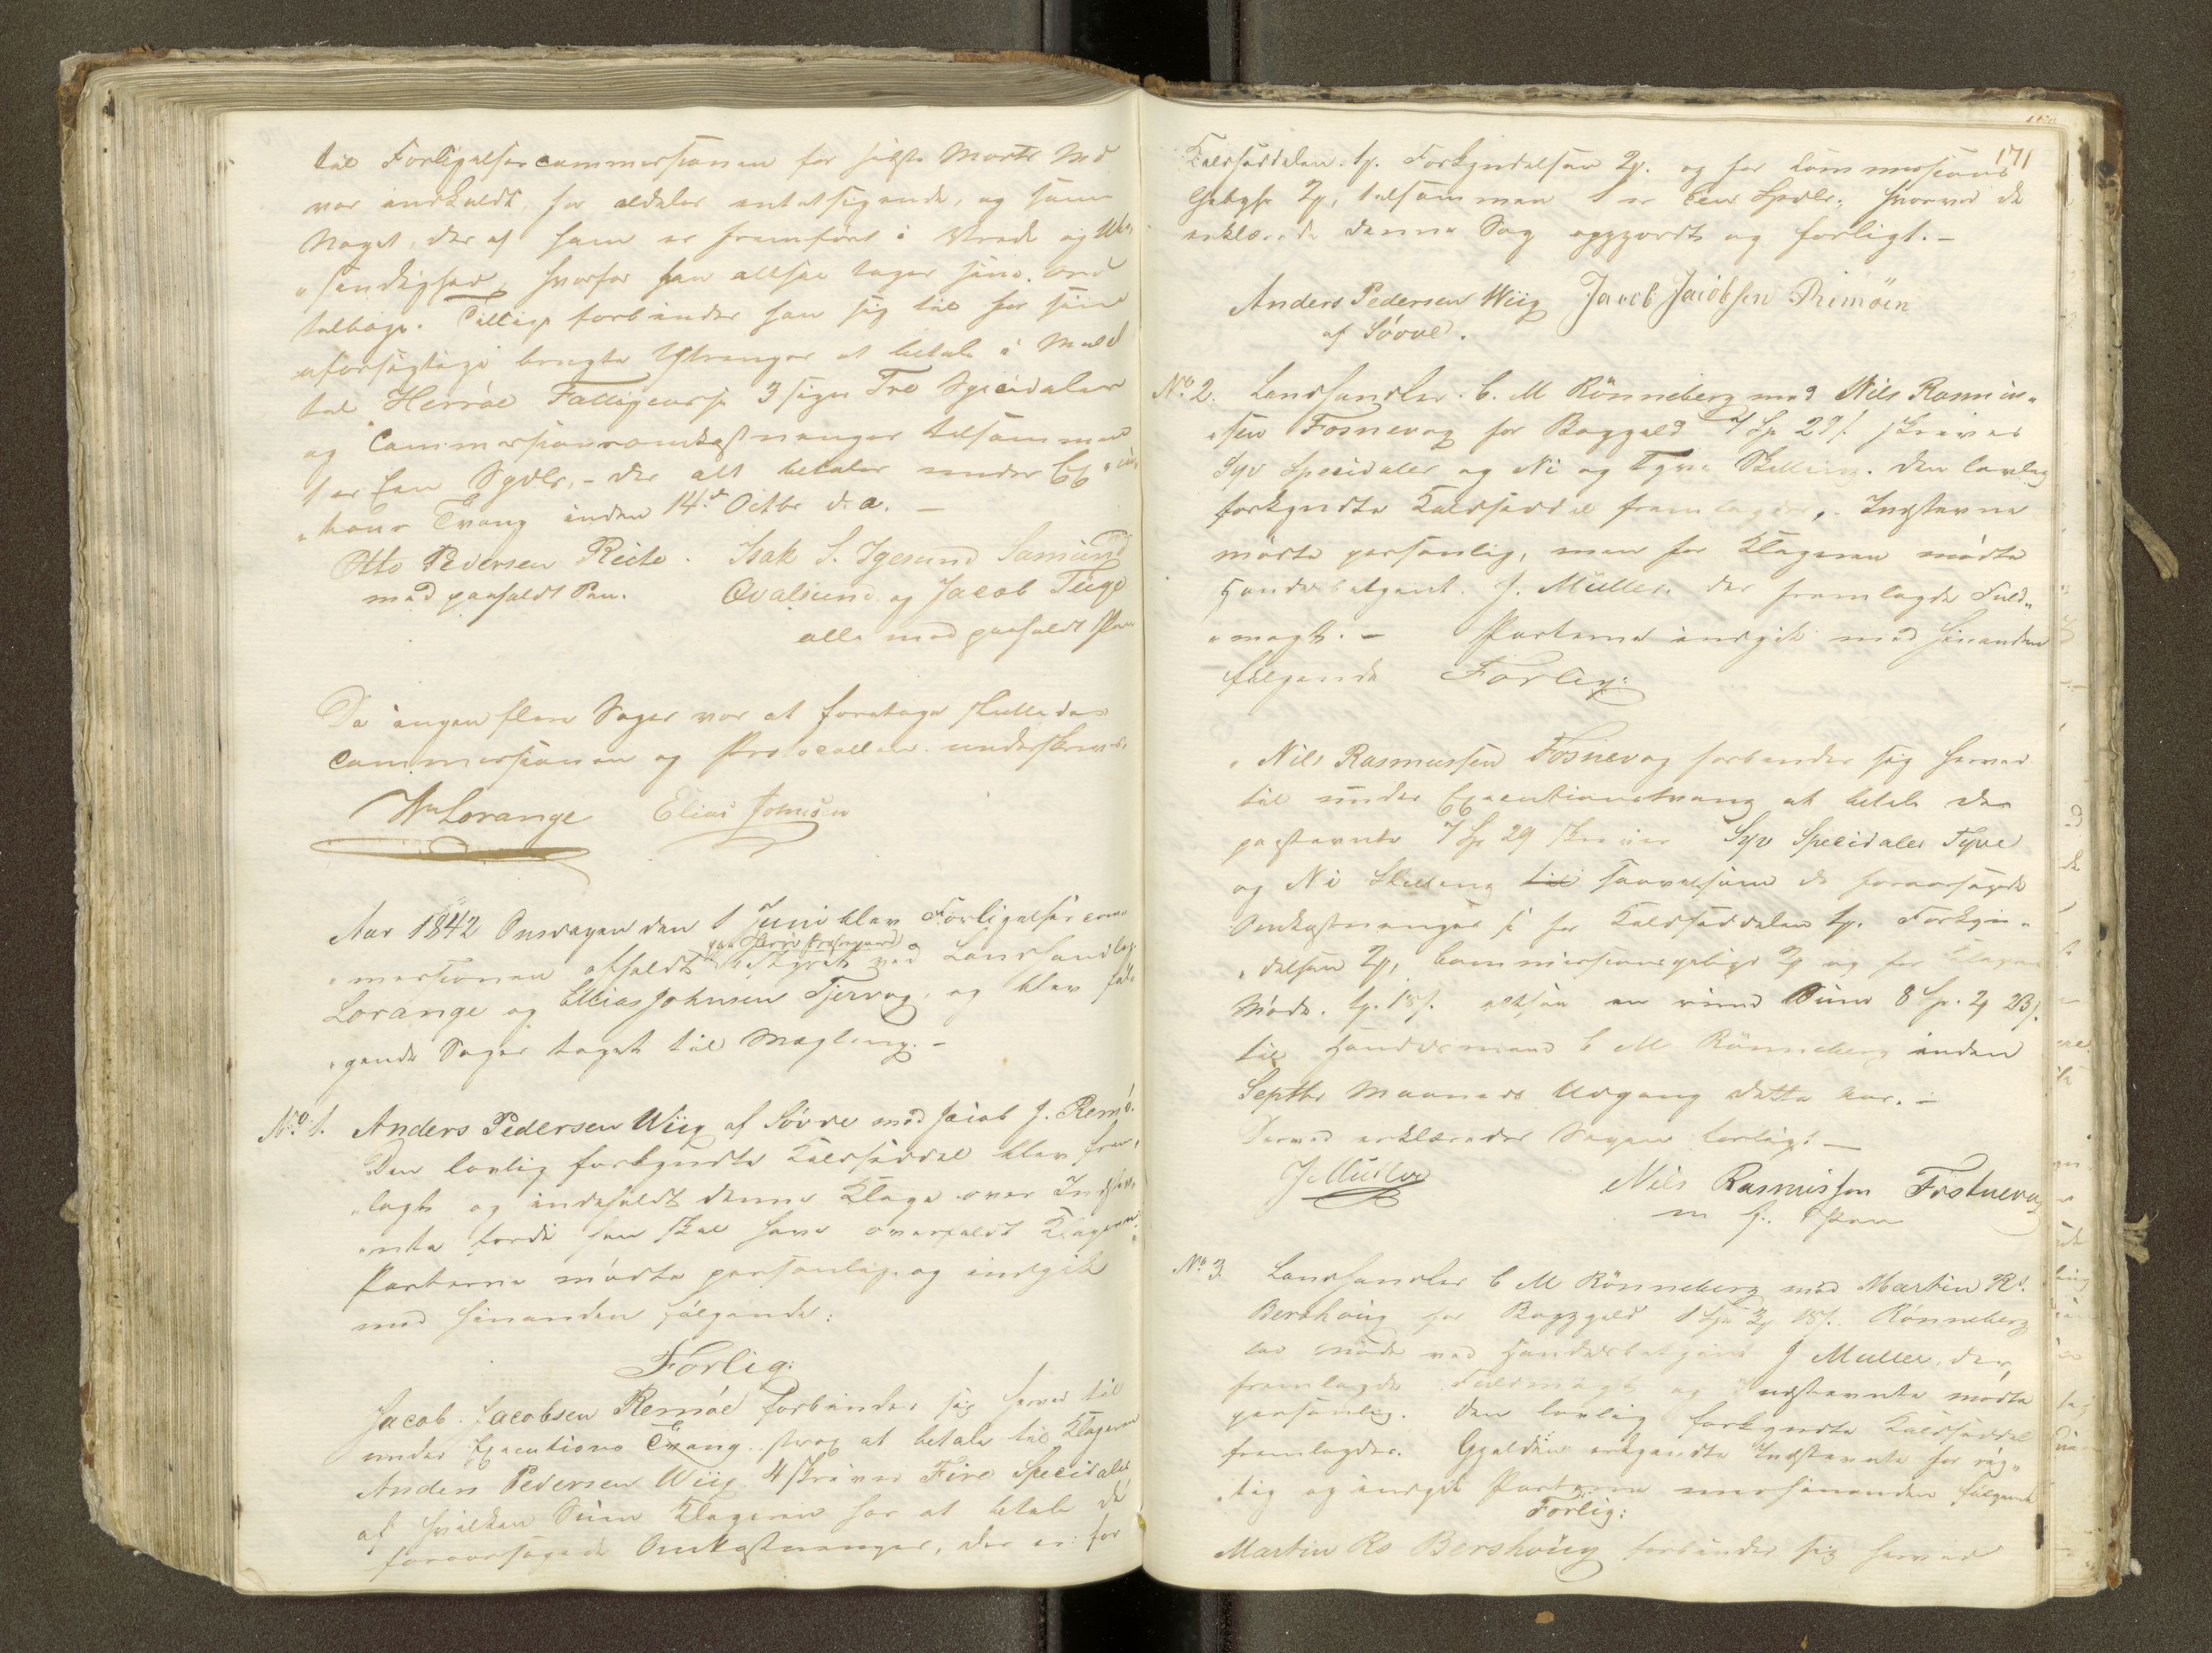 til Forligelsescommissionen for sidste Møde
var indkaldt, for aldeles intetsigende, og som
Noget, der af ham er fremført i Vrede og Ube„
„sindighed, hvorfor han altsaa tager sine Ord
tilbage. Tillige forbinder han sig til for sine
uforsigtige brugte Yttringer at betale i Mulct
til Herröe Fattigcasse 3 siger Tre Speciedaler
og Commissionsomkostninger tilsammen
1 er Een Spdlr, - der alt betales under Exe„
„tions Tvang inden 14de Octbr d. a. —
Otto Pedersen Reite. Isak S. Igesund Samund
med paaholdt Pen. Qvalsund og Jacob Teige
alle med paaholdt Pen
Da ingen flere Sager var at foretage sluttedes
Commissionen og Protocollen underskreves.
Wm Lorange Elias Johnsen
Aar 1842 Onsdagen den 1 Juni blev Forligelsescom„
paa Herrö Præstegaard
„missionen afholdt bestyret ved Landhandler
Lorange og Elias Johnsen Tjervaag, og blev føl„
„gende Sager taget til Mægling. -
No 1. Anders Pedersen Wiig af Sövde mod Jacob J. Remö.
Den lovlig forkyndte Kaldseddel blev frem„
„lagt og indeholdt denne Klage over Indstev„
„nte fordi han skal have overfaldt Klageren.
Parterne mödte personlig og indgik
med hinanden følgende:
Forlig:
Jacob Jacobsen Remöe forbinder sig herved til
under Executions Tvang strax at betale til Klageren
Anders Pedersen Wiig 4 skriver Fire Speciedaler
af hvilken Sum Klageren har at betale de
foraarsagede Omkostninger, der er: for
171
Kaldseddelen 1 . Forkyndelsen 2 . og for Commissions
Gebyhr 2 , tilsammen 1 er Een Spdlr; hvorved de
erklærede denne Sag opgjordt og forligt. -
Anders Pedersen Wiig Jacob Jacobsen Rimöen
af Söovde.
No 2. Landhandler C. M Rönneberg mod Nils Rasmus„
„sen Fosnevog for Boggjeld 7 Sp 29 s. skriver
Syv Speciedaler og Ni og Tyve Skilling. Den lovlig
forkyndte Kaldseddel fremlagdes. Indstevnte
mödte personlig, men for Klageren mödte
Handelsbetjent J. Müller der fremlagde Fuld„
„magt. - Parterne indgik med hinanden
følgende Forlig:
Nils Rasmussen Fosnevog forbinder sig herved
til under Executionstvang at betale de
paastevnte 7 Sp 29 skriver Syv Speciedaler Tyve
og Ni Skilling til saavelsom de foraarsagede
Omkostninger for Kaldseddelen 1 . Forkyn„
„delsen 2 , Commissionsgebyr 2 og for Klagerens
Möde 1 . 18 s. altsaa en Sum 8 Sp. 2 23 s.
til Handelsmand C M Rönneberg inden
Septbr Maaneds Udgang dette Aar. -
Dermed erklæredes Sagen forligt —
J. Müller Nils Rasmussen Fostnevaag
m. f. Pen
No 3. Landhandler C M Rönneberg mod Martin Rs.
Bershoug for Boggjeld 1 Sp 3 18 s. Rönneberg
lod möde ved Handelsbetjent J Muller, der
fremlagde Fuldmagt og Indstevnte mödte
personlig. Den lovlig forkyndte Kaldseddel
fremlagdes. Gjælden erkjendte Indstevnte for rig„
„tig og indgik Parterne med hinanden følgende
Forlig:
Martin Rs Bershoug forbinder sig herved